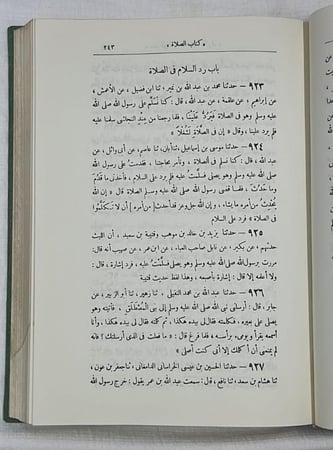 « كتاب الصلاة » ٢٤٣
باب رد السلام فى الصلاة
٩٢٣ — حدثنا محمد بن عبد الله بن نمير، ثنا ابن فضيل، عن الأعمش، عن
إبراهيم، عن علقمة، عن عبد الله، قال: كنا نُسَلِّم على رسول الله صلى الله
عليه وسلم وهو فى الصلاة فَيَرُدُّ عَلَيْنَا، فلما رجعنا من عند النجاشى سلمنا عليه
فلم يرد علينا، وقال « إن فى الصَّلَاةِ لَشُغْلاً »
٩٢٤ — حدثنا موسى بن إسماعيل، ثنا أبان، ثنا عاصم، عن أبى وائل، عن
عبد الله، قال: كنا نسلم فى الصلاة، ونأمر بحاجتنا، فقدمتُ على رسول الله
صلى الله عليه وسلم وهو يصلى فسلَّمْتُ عليه فلم يرد على السلام، فأخذنى ما قَدُمَ
وما حَدُثَ، فلما قضى رسول الله صلى الله عليه وسلم الصلاة قال « إن الله
يُحْدِثُ من أمره ما يشاء، وإن الله جل وعز قد أحدث [من أمره] أن لا تَكَلَّمُوا
فى الصلاة » فرد على السلام
٩٢٥ — حدثنا يزيد بن خالد بن موهب، وقتيبة بن سعيد، أن الليث
حدثهم، عن بكير، عن نابل صاحب العباء، عن ابن عمر، عن صهيب أنه قال:
مررت برسول الله صلى الله عليه وسلم وهو يصلى فسلمتُ عليه، فرد إشارة، قال:
ولا أعلمه إلا قال: إشارة بأصبعه، وهذا لفظ حديث قتيبة
٩٢٦ — حدثنا عبد الله بن محمد النفيلى، ثنا زهير، ثنا أبو الزبير، عن
جابر، قال: أرسلنى نبى الله صلى الله عليه وسلم إلى بنى الْمُصْطَلَقِ، فأتيته وهو
يصلى على بعيره، فكلمته فقال لى بيده هكذا، ثم كلمته فقال لى بيده هكذا، وأنا
أسمعه يقرأ ويومىء برأسه، فلما فرغ قال: « ما فعلت فى الذى أرسلتك؟ فإنه
لم يمنعنى أن أكلمك إلا أنى كنت أصلى »
٩٢٧ — حدثنا الحسين بن عيسى الخراسانى الدامغانى، ثنا جعفر بن عون،
ثنا هشام بن سعد، ثنا نافع، قال: سمعت عبد الله بن عمر يقول: خرج رسول الله